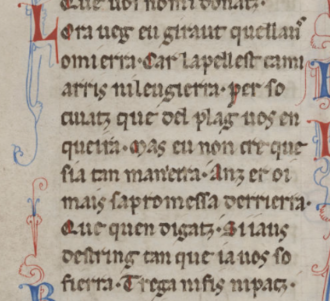 Que uoi nom i donatz.
Lora ueg eu giraut quellaus
omi erra. Car lapellest cami
arris ni leugierra. per so
cuiatz que del plag uos en
queira. Mas eu non cre que
sia tan man'erra. Anz er oi
mais sapromessa derrierra.
Que quen digatz. Si iaus
destring tan que ia uos so
fierra. Trega ni fis ni patz.